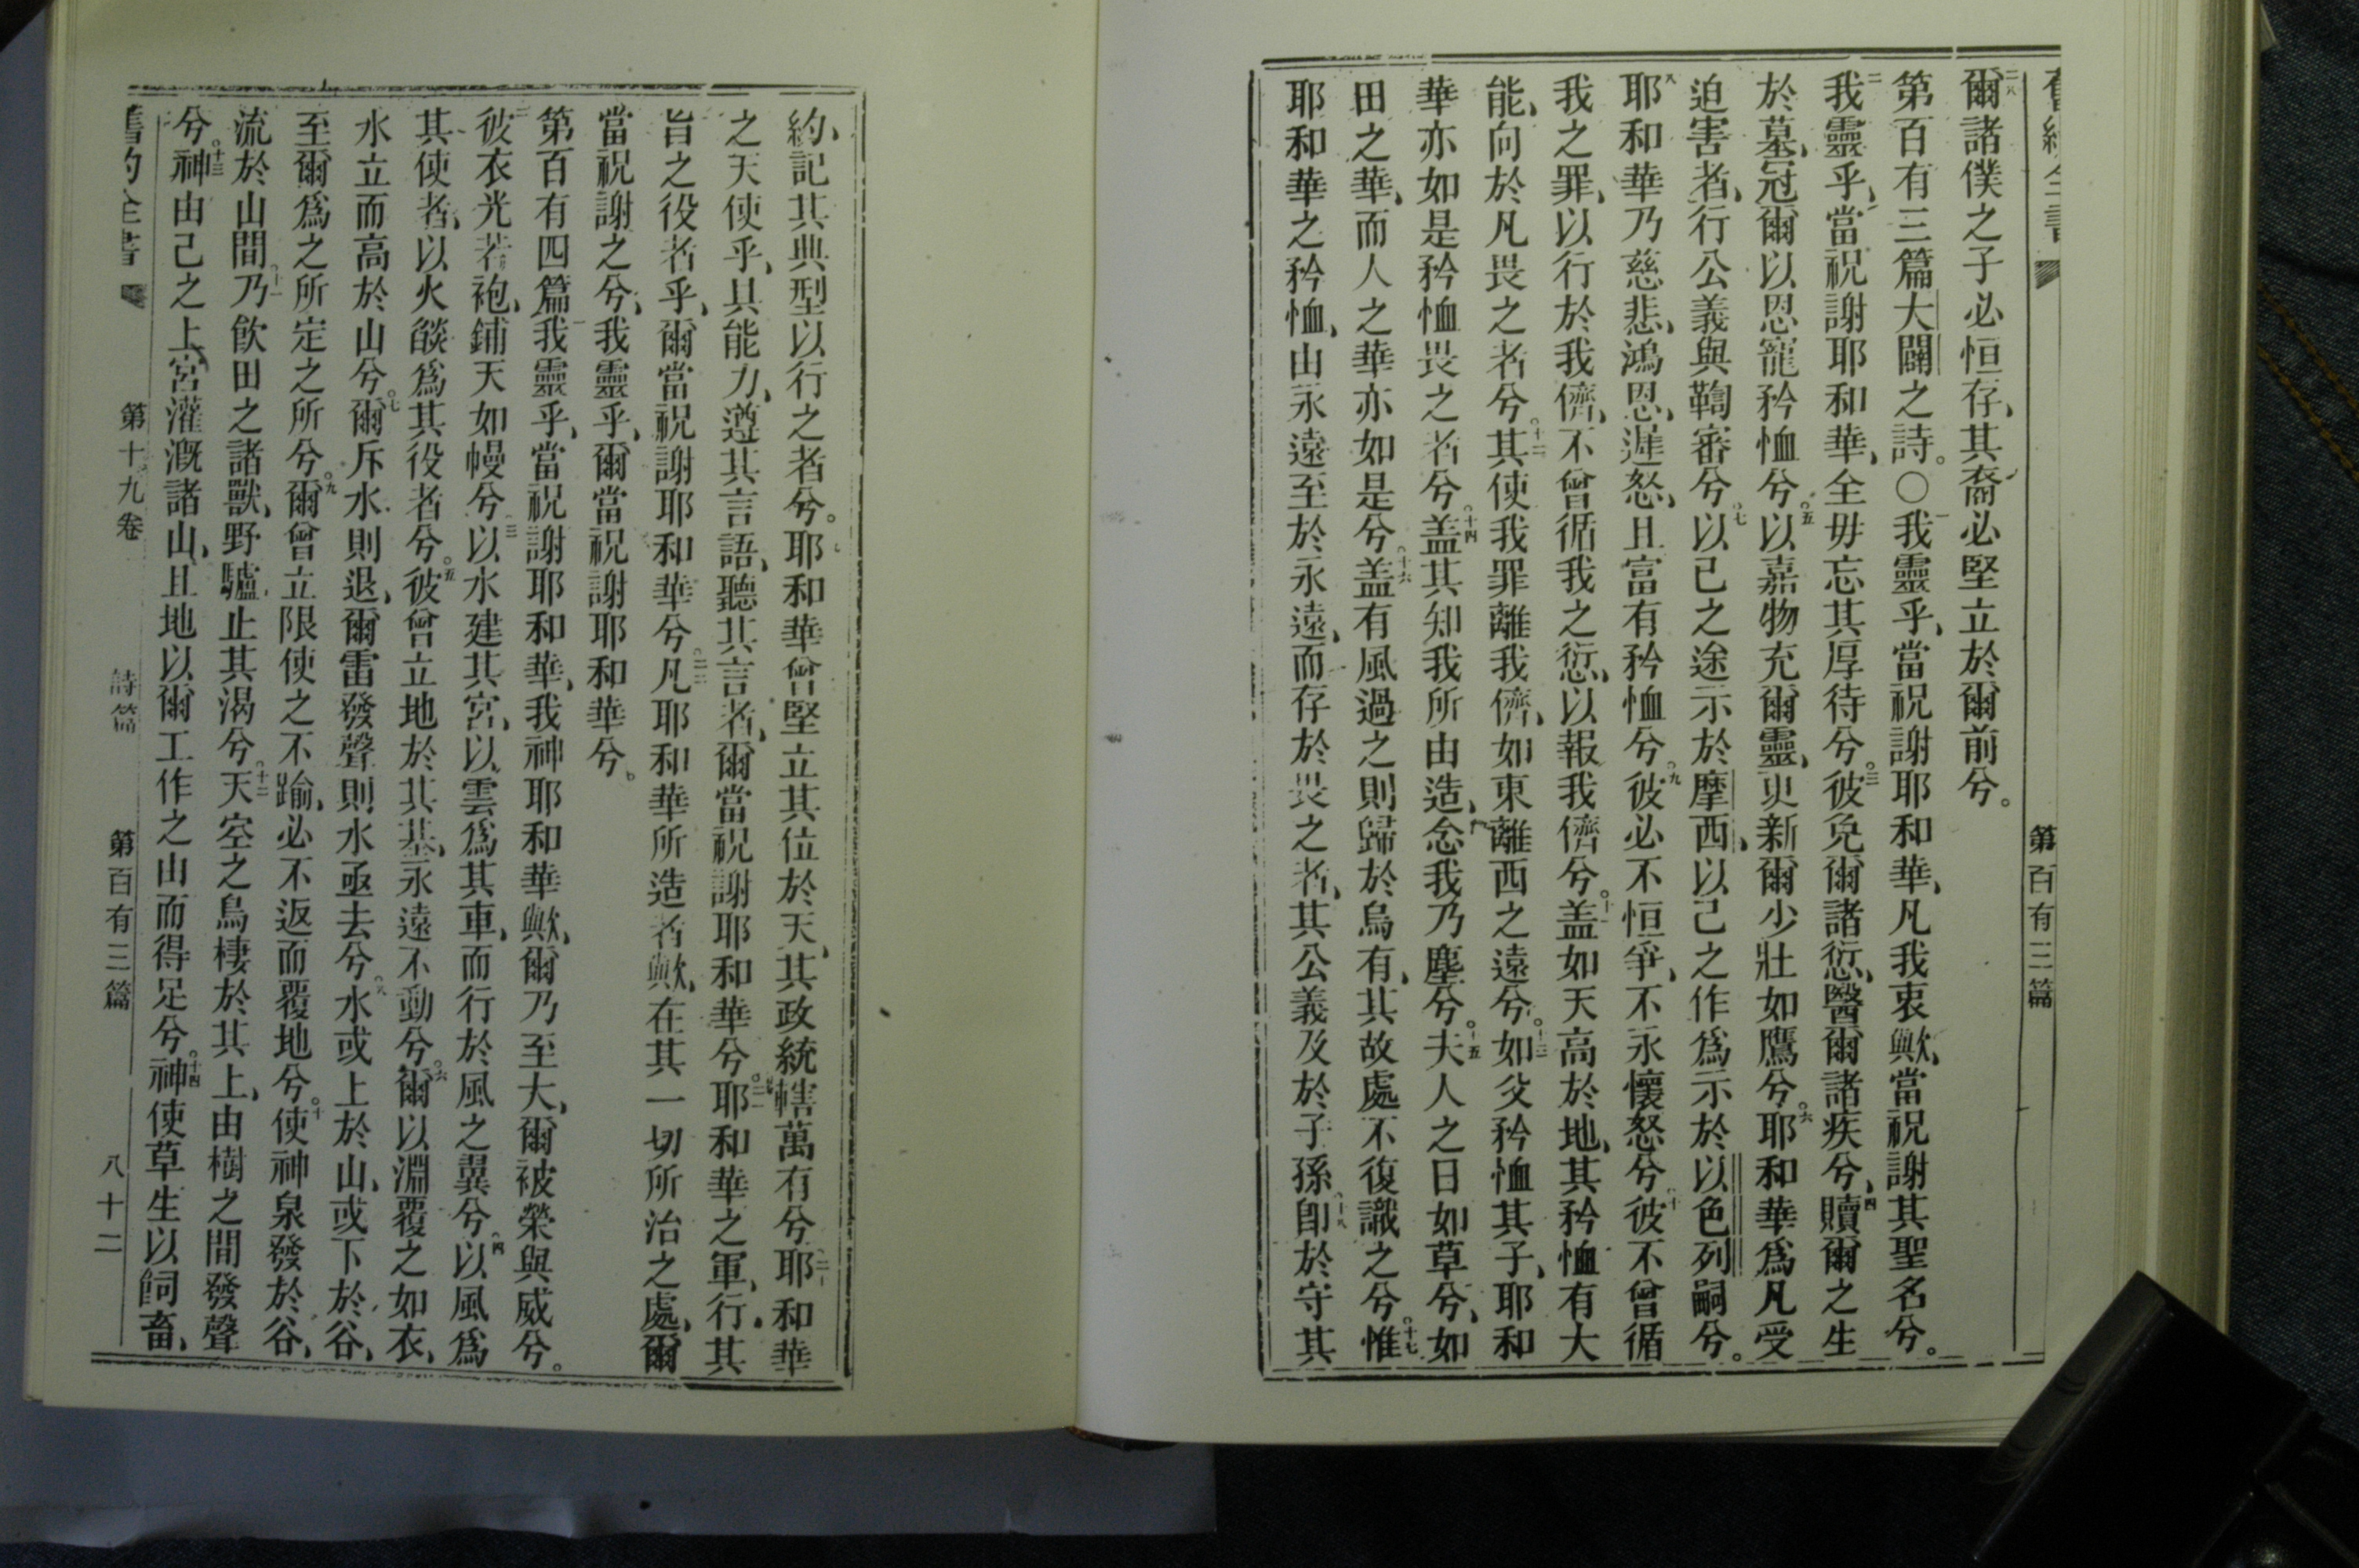 舊約全書 第百有三篇
二八爾諸僕之子必恒存、其裔必堅立於爾前兮。
第百有三篇大闢之詩。○一我靈乎、當祝謝耶和華、凡我衷歟、當祝謝其聖名兮。
二我靈乎、當祝謝耶和華、全毋忘其厚待兮。三彼免爾諸愆、醫爾諸疾兮、四贖爾之生
於墓、冠爾以恩寵矜恤兮。五以嘉物充爾靈、更新爾少壯如鷹兮。六耶和華爲凡受
迫害者、行公義與鞫審兮。七以己之途示於摩西、以己之作爲示於以色列嗣兮。
八耶和華乃慈悲、鴻恩、遲怒、且富有矜恤兮。九彼必不恒爭、不永懷怒兮。十彼不曾循
我之罪、以行於我儕、不曾循我之愆、以報我儕兮。十一盖如天高於地、其矜恤有大
能、向於凡畏之者兮。十二其使我罪離我儕、如東離西之遠兮。十三如父矜恤其子、耶和
華亦如是矜恤畏之者兮。十四盖其知我所由造、念我乃塵兮。十五夫人之日如草兮、如
田之華、而人之華亦如是兮。十六盖有風過之則歸於烏有、其故處不復識之兮。十七惟
耶和華之矜恤、由永遠至於永遠、而存於畏之者、其公義及於子孫、十八卽於守其
約、記其典型以行之者兮。耶和華曾堅立其位於天、其政統轄萬有兮。二十耶和華
之天使乎、具能力、遵其言語、聽其言者、爾當祝謝耶和華兮。二一耶和華之軍、行其
旨之役者乎、爾當祝謝耶和華兮。二二凡耶和華所造者歟、在其一切所治之處、爾
當祝謝之兮、我靈乎、爾當祝謝耶和華兮。
第百有四篇一我靈乎、當祝謝耶和華、我神耶和華歟、爾乃至大、爾被榮與威兮。
二彼衣光若袍、鋪天如幔兮。三以水建其宮、以雲爲其車、而行於風之翼兮。四以風爲
其使者、以火燄爲其役者兮。五彼曾立地於其基、永遠不動兮。六爾以淵覆之如衣、
水立而高於山兮。七爾斥水則退、爾雷發聲則水亟去兮。八水或上於山、或下於谷、
至爾爲之所定之所兮。九爾曾立限使之不踰、必不返而覆地兮。十使神泉發於谷、
流於山間、十一乃飲田之諸獸、野驢止其渴兮。十二天空之鳥棲於其上、由樹之間發聲
兮。十三神由己之上宮灌溉諸山、且地以爾工作之山而得足兮。十四神使草生以飼畜、
舊約全書 第十九卷 詩篇 第百有三篇 八十二